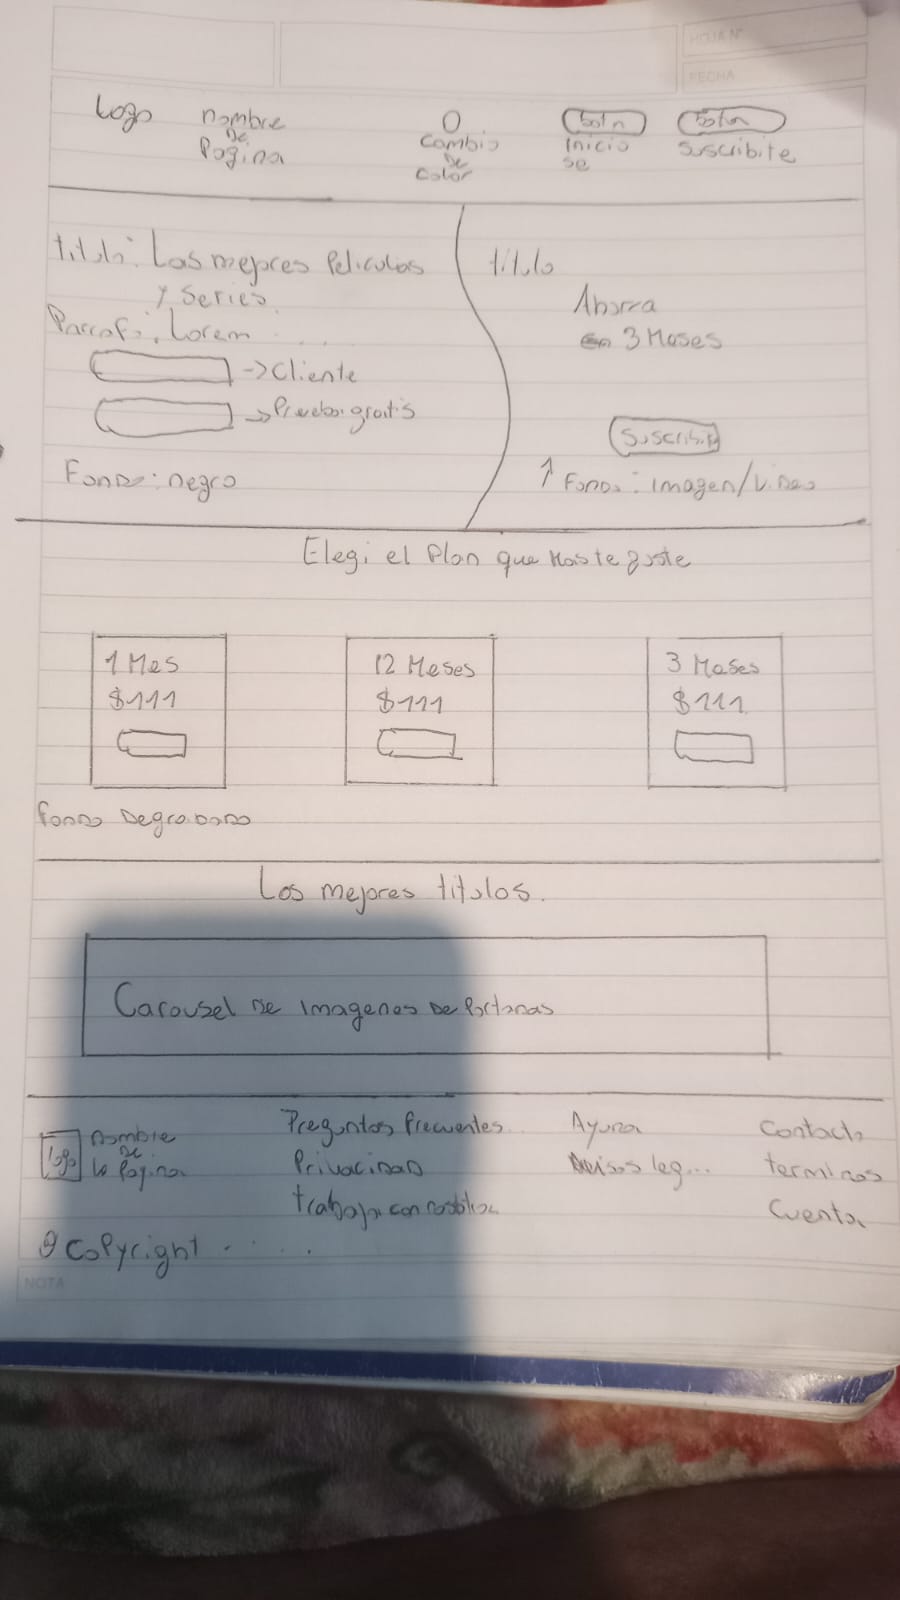 HOJA N°
FECHA
Logo
nombre
De
Pagina
Cambio
De
Color
botn
Inicio
se
boton
Suscribite
titulo: Las mejores Peliculas
y Series
Parrafo: Lorem ....
->Cliente
->Prueba gratis
Fondo: negro
titulo
Ahorra
en 3 Meses
Suscribite
↑ Fondo: imagen/Video
Elegi el Plan que mas te guste
1 Mes
$111
12 Meses
$111
3 Meses
$111
Fondo Degradado
Los mejores titulos.
Carousel de imagenes de Portadas
logo
nombre
De
la Pagina
Preguntas frecuentes
Privacidad
trabaja con nosotros
Ayuda
Avisos leg...
Contacto
terminos
Cuenta
Copyright . . . .
NOTA